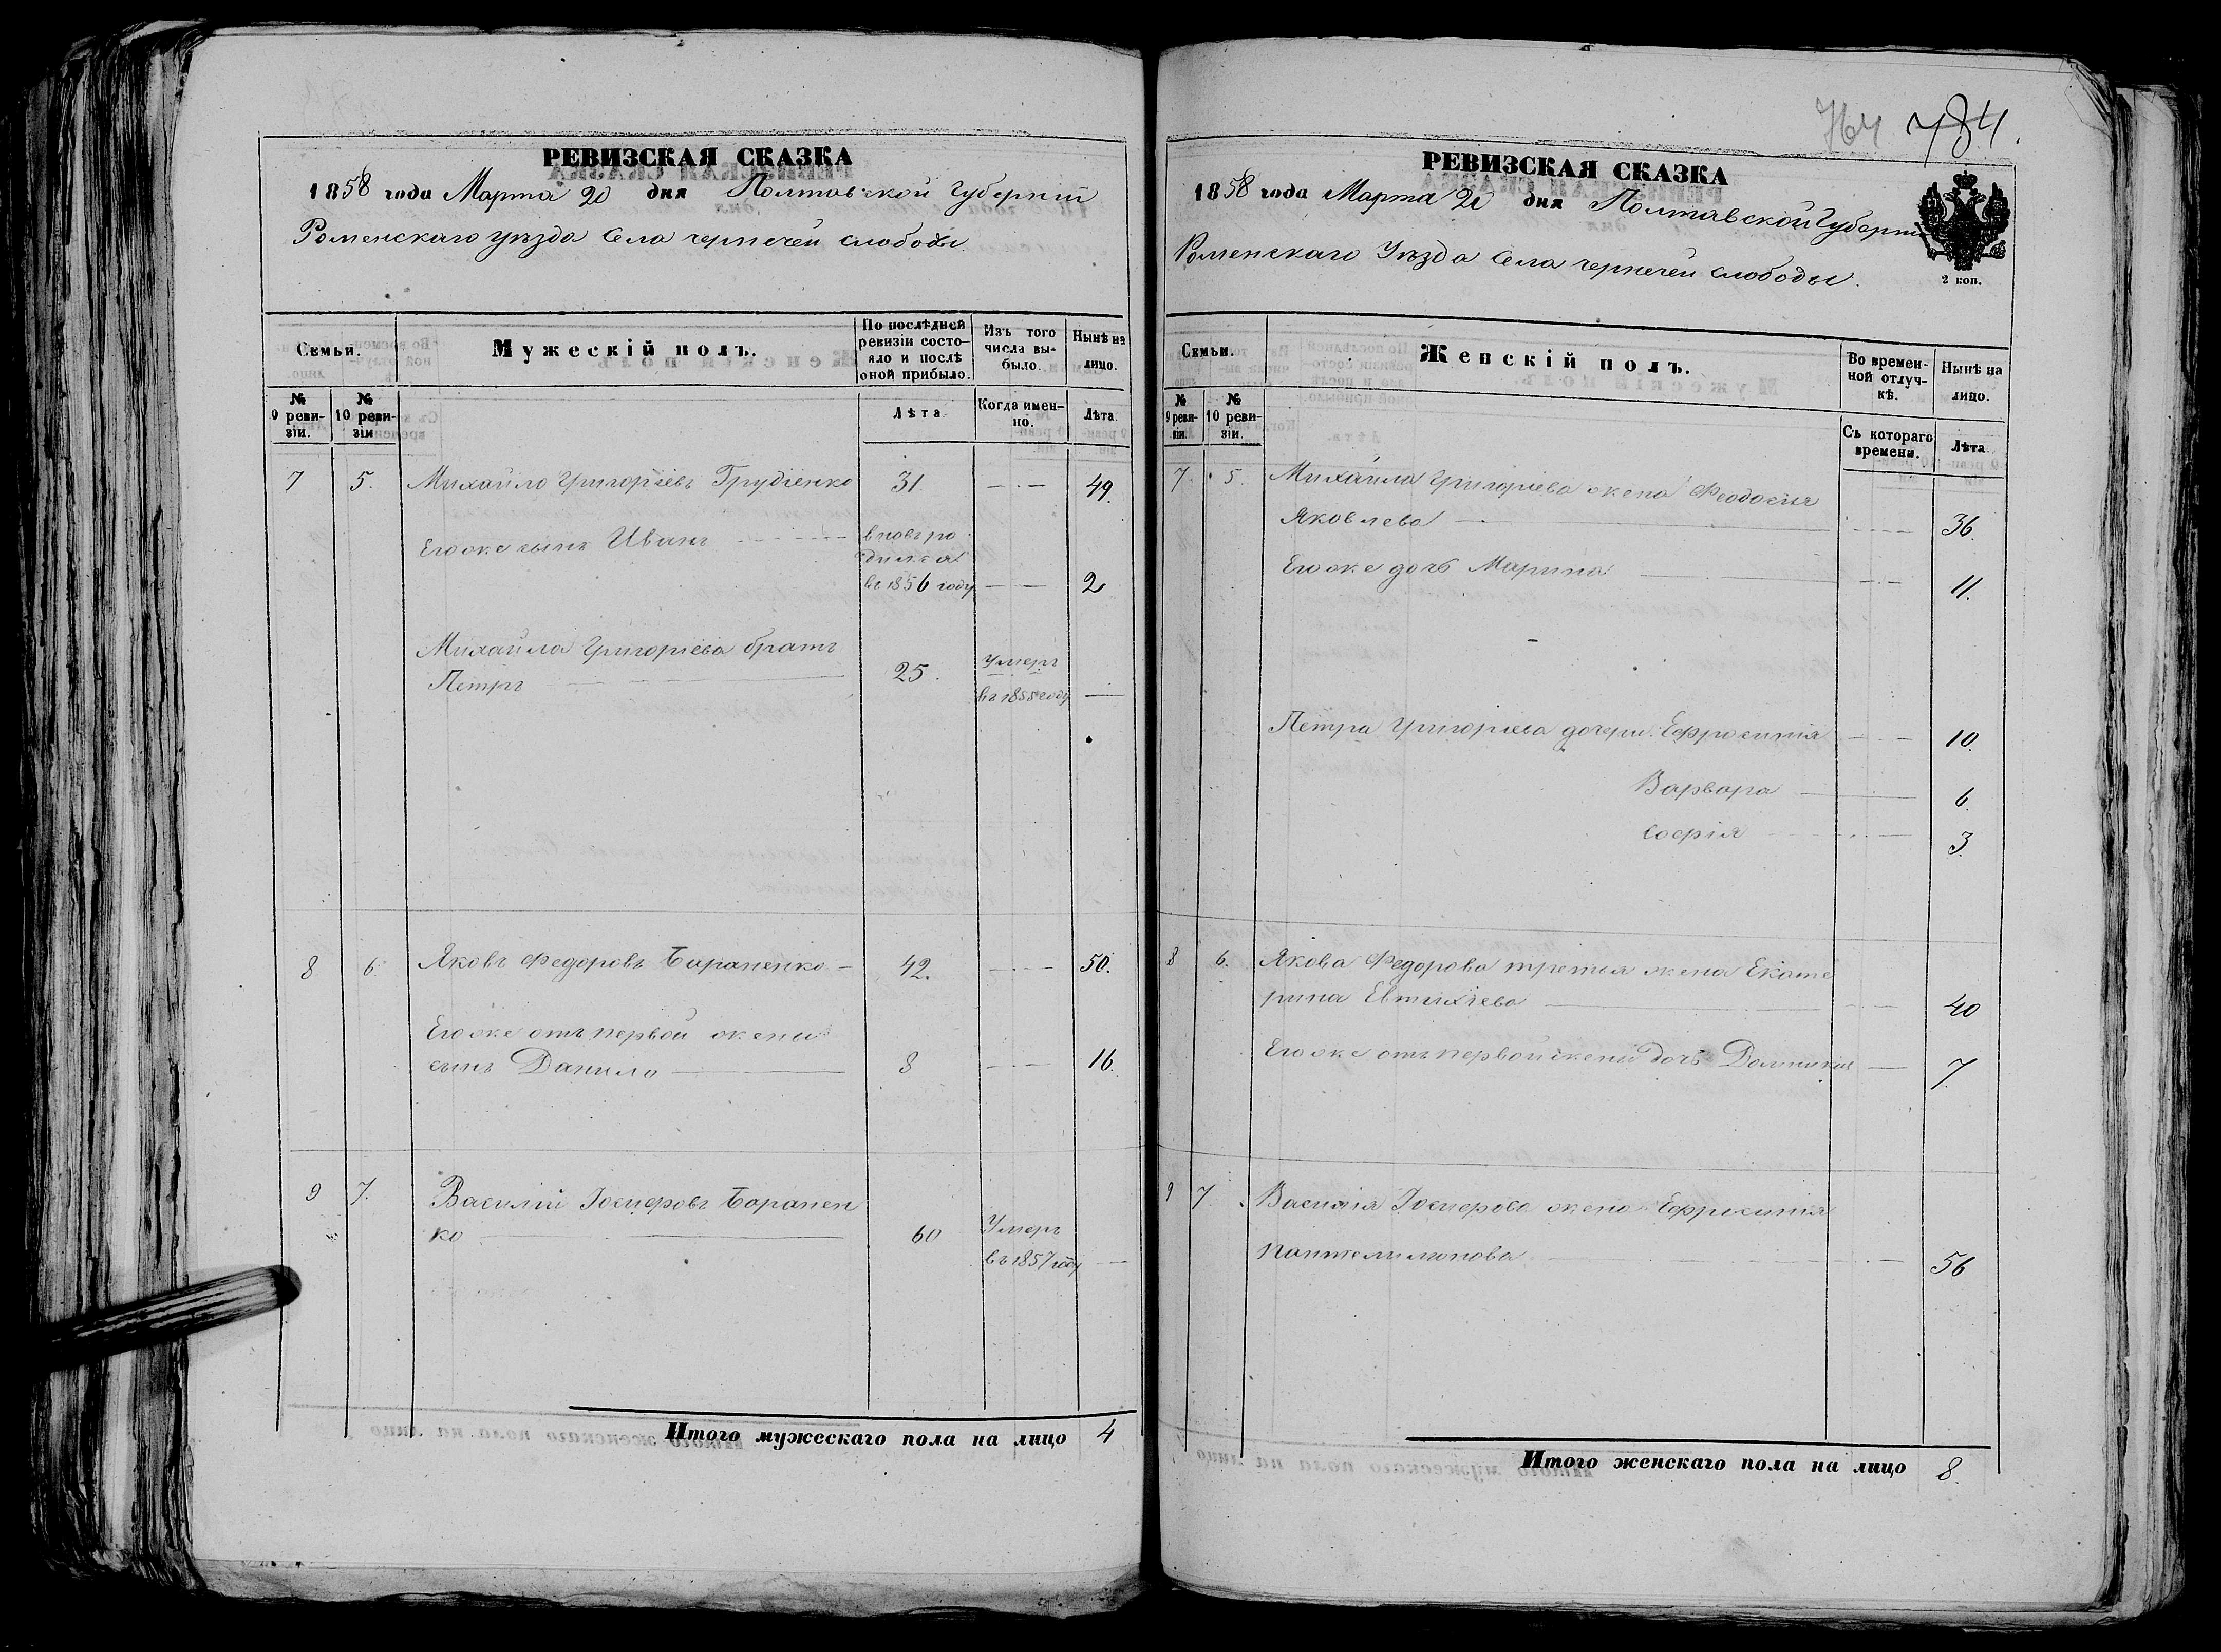 РЕВИЗСКАЯ СКАЗКА
1858 года Марта 20 дня Полтавской Губерніи
Роменскаго уѣзда Села чернечей слободы
Семьи.
Мужескій полъ.
По послѣдней ревизіи состояло и послѣ оной прибыло.
Изъ того числа выбыло.
Нынѣ на лицо.
№ 9 ревизіи.
№ 10 ревизіи
Лѣта
Когда именно.
Лѣта.
7 5. Михайло Григорьевъ 31 — 49.
Егоже сынъ Иванъ вновь ро
дился
въ 1856 году — 2
Михайла Григоріева братъ умеръ
Петръ 25. въ 1855 году —
8 6. Яковъ Федоровъ Бараненко 42. — 50.
Егоже отъ первой жены
сынъ Данило 8 — 16.
9 7. Василий Іосифовъ Баранен
ко 60 Умеръ
въ 1857 году —
Итого мужескаго пола на лицо 4
764 784.
РЕВИЗСКАЯ СКАЗКА
1858 года Марта 20 дня Полтавской Губерніи
Роменскаго Уѣзда Села чернечей слободы.
2 коп.
Семьи.
Женскій полъ.
Во временной отлучкѣ.
Нынѣ на лицо.
№ 9 ревизіи.
№ 10 ревизіи.
Съ котораго времени.
Лѣта
7 5. Михайла Григоріева жена Феодосія
Яковлева — 36.
Егоже дочь Марина — 11.
Петра Григоріева дочери Ефросинія — 10.
Варвара — 6.
Софія — 3.
8 6. Якова Федорова третья жена Екате
рина Евтихіева — 40
Егоже отъ первой жены дочь Домникія — 7.
9 7. Василія Іосифова жена Ефросинія
Пантелимонова — 56
Итого женскаго пола на лицо 8.